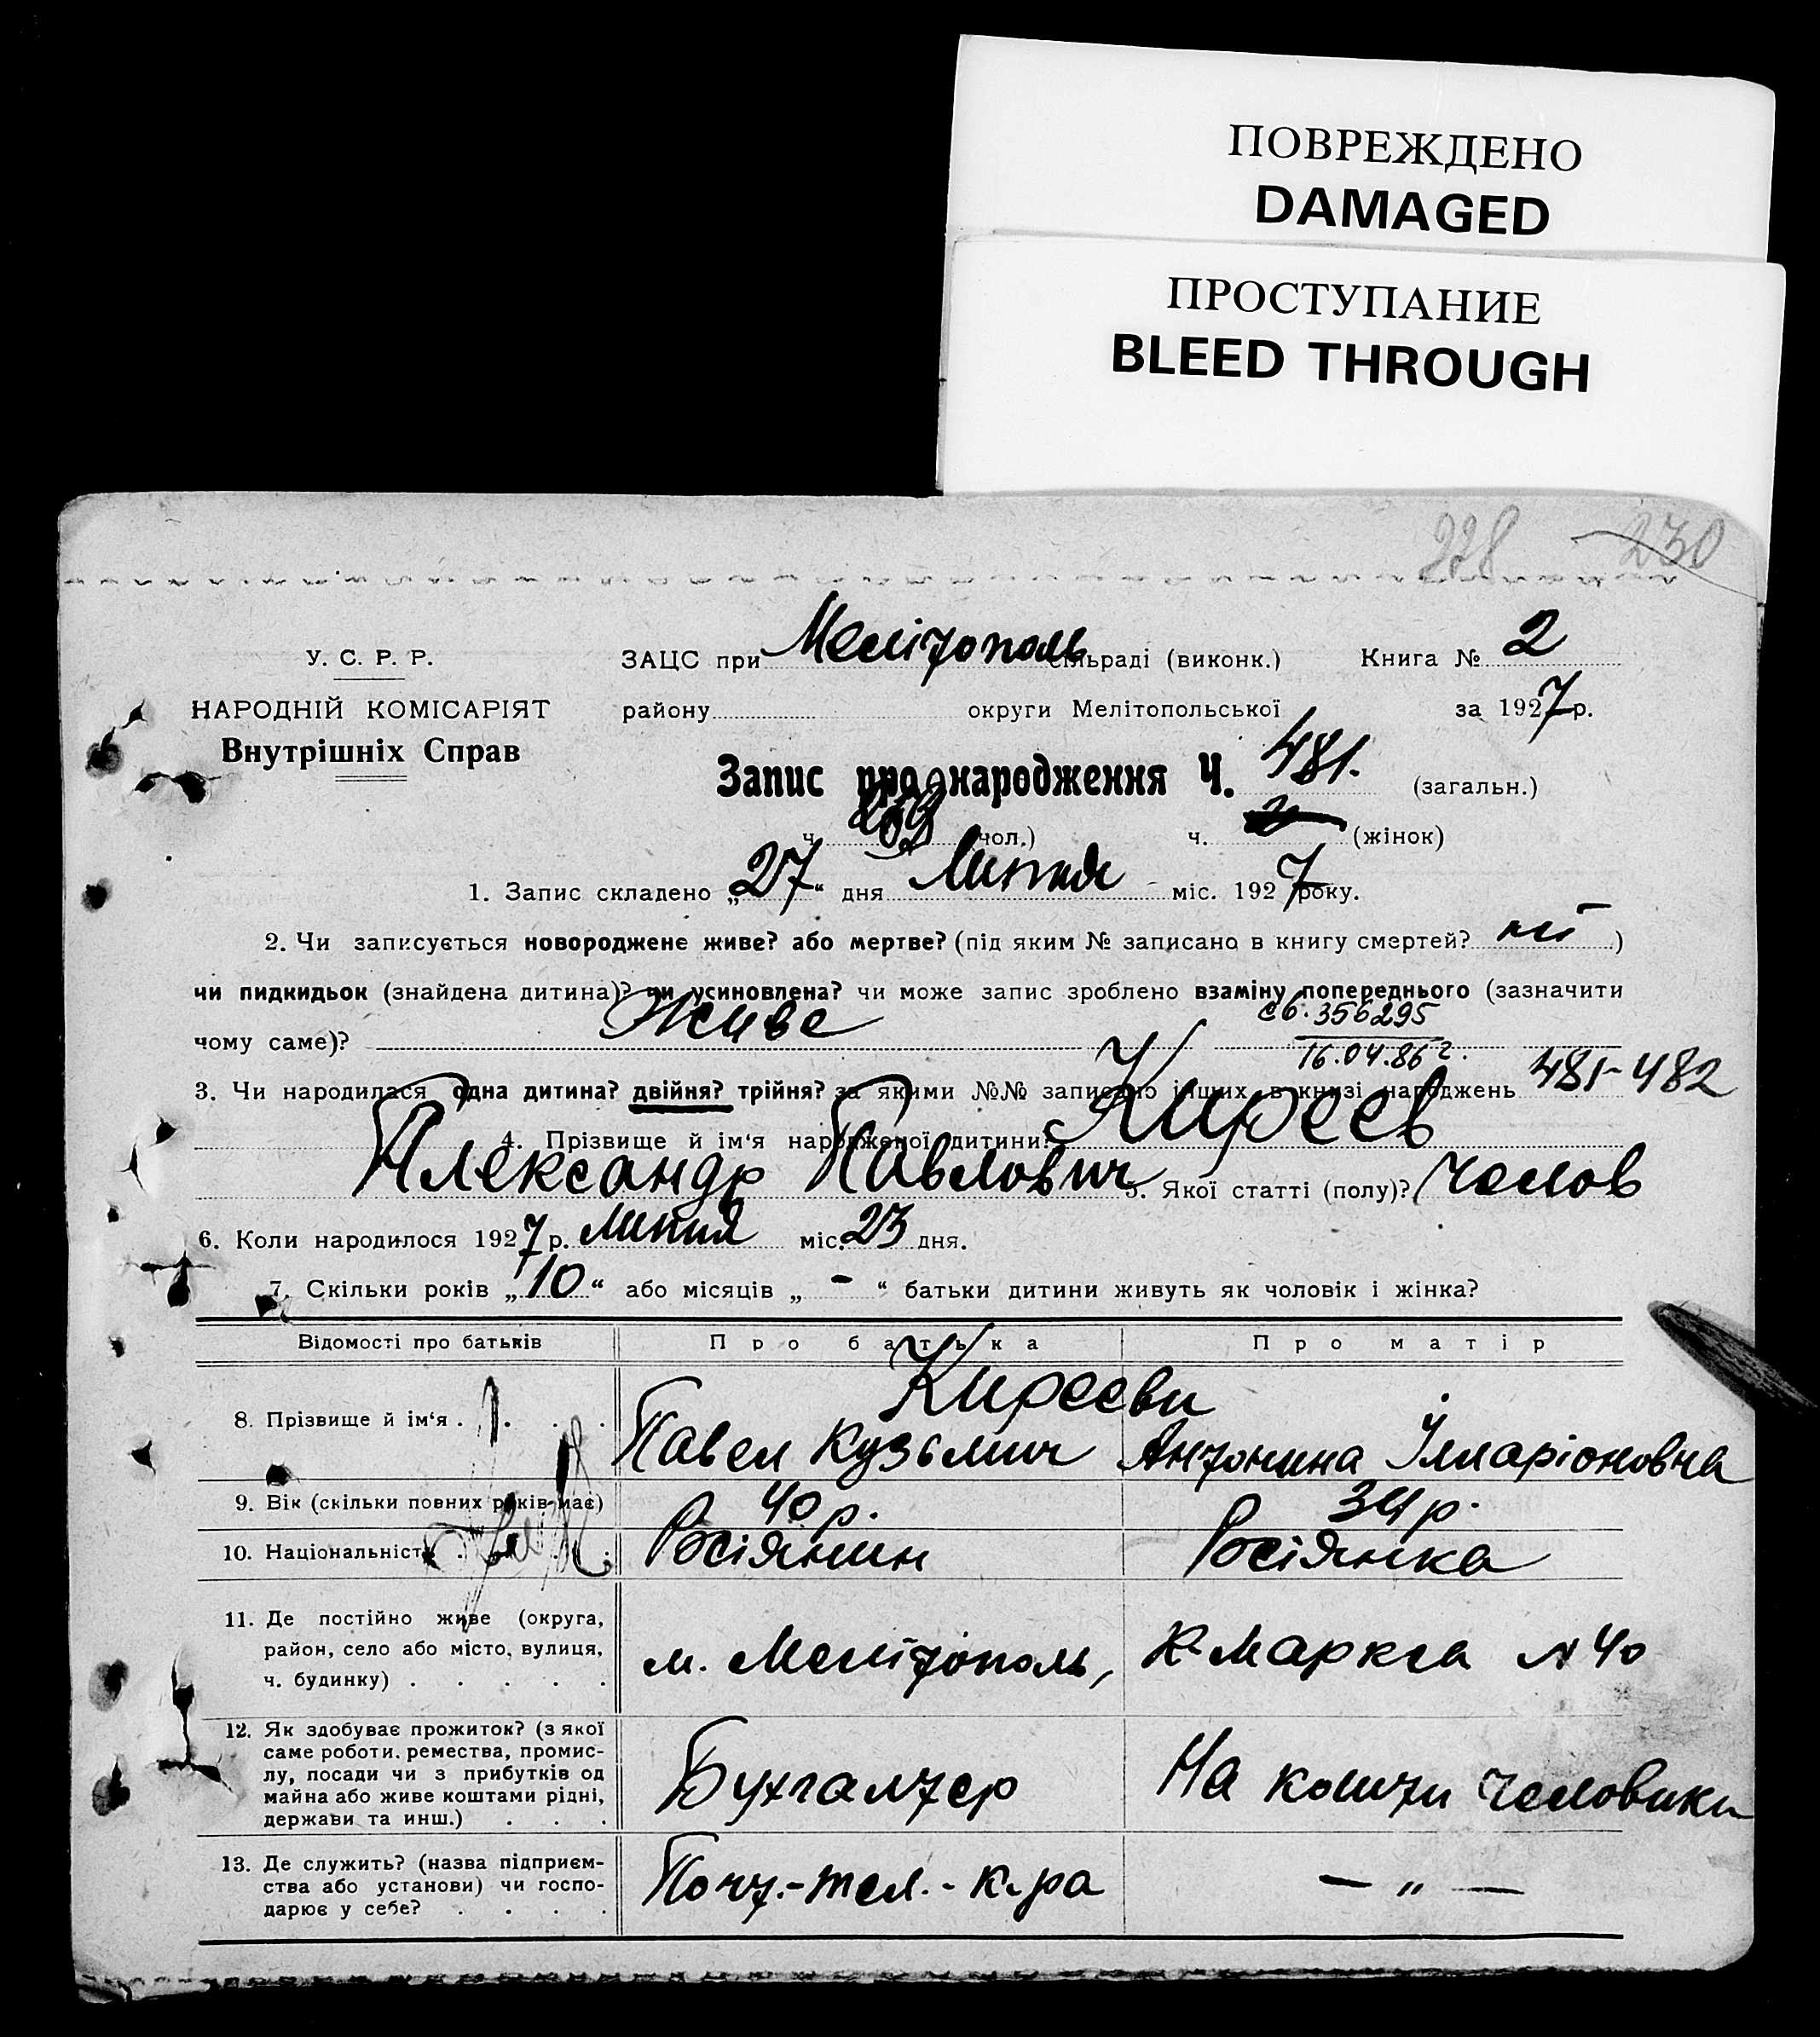 ПОВРЕЖДЕНО
DAMAGED
ПРОСТУПАНИЕ
BLEED THROUGH
228 230
У. С. Р. Р.
НАРОДНІЙ КОМІСАРІЯТ
Внутрішніх Справ
ЗАЦС при Мелітополь сільраді (виконк.) Книга № 2
району округи Мелітопольської за 1927 р.
Запис про народження Ч. 481. (загальн.)
ч. 259 (чол.) ч. (жінок)
1. Запис складено „27“ дня Липня міс. 1927 року.
2. Чи записується новороджене живе? або мертве? (під яким № записано в книгу смертей? ні )
чи пидкидьок (знайдена дитина)? чи усиновлена? чи може запис зроблено взаміну попереднього (зазначити
чому саме)? Живе
св. 356295
16.04.86 г.
3. Чи народилася одна дитина? двійня? трійня? за якими №№ записано інших в книзі народжень 481-482
4. Прізвище й ім‘я народженої дитини? Киреев
Александр Павлович 5. Якої статті (полу)? Челов
6. Коли народилося 1927 р. Липня міс. 23 дня.
7. Скільки років „10“ або місяців „ - “ батьки дитини живуть як чоловік і жінка?
Відомості про батьків Про батька Про матір
Киреєви
8. Прізвище й ім‘я . . . . Павел Кузьмич Антонина Ілларіоновна
9. Вік (скільки повних років має) 40 р. 34 р.
10. Національність . . . Росіянин Росіянка
11. Де постійно живе (округа,
район, село або місто, вулиця,
ч. будинку) . . . . .
м. Мелітополь, К-Маркса № 40
12. Як здобуває прожиток? (з якої
саме роботи, ремества, промис-
лу, посади чи з прибутків од
майна або живе коштами рідні,
держави та инш.) . . .
Бухгалтер На кошти человики
13. Де служить? (назва підприєм-
ства або установи) чи госпо-
дарює у себе? . . . .
Почт.-тел.-к-ра — „ —